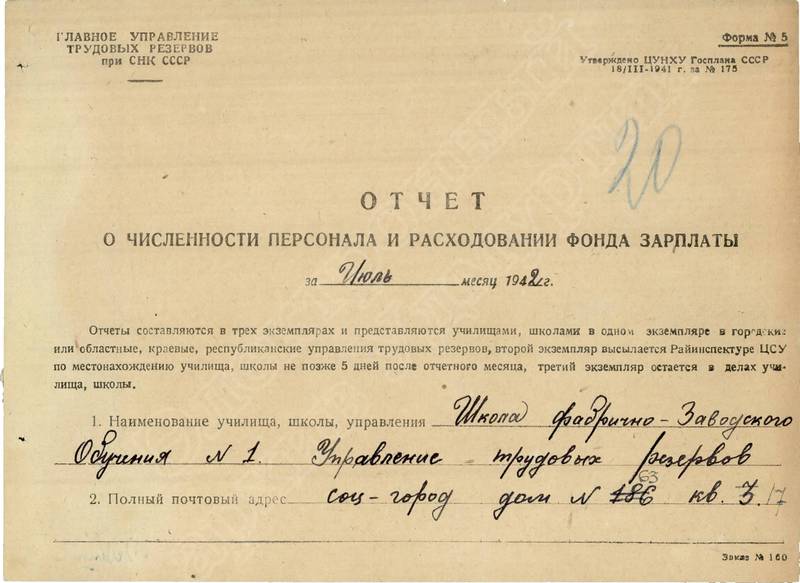 ГЛАВНОЕ УПРАВЛЕНИЕ
ТРУДОВЫХ РЕЗЕРВОВ
при СНК СССР
Форма № 5
Утверждено ЦУНХУ Госплана СССР
18/III-1941 г. за № 175
20
ОТЧЕТ
О ЧИСЛЕННОСТИ ПЕРСОНАЛА И РАСХОДОВАНИИ ФОНДА ЗАРПЛАТЫ
за Июль месяц 1942 г.
Отчеты составляются в трех экземплярах и представляются училищами, школами в одном экземпляре в городские
или областные, краевые, республиканские управления трудовых резервов, второй экземпляр высылается Райинспектуре ЦСУ
по местонахождению училища, школы не позже 5 дней после отчетного месяца, третий экземпляр остается в делах учи-
лища, школы.
1. Наименование училища, школы, управления Школа фабрично-Заводского
Обучения № 1. Управление трудовых резервов
63
2. Полный почтовый адрес соц-город дом № 186 кв. 3. 17
Заказ № 160